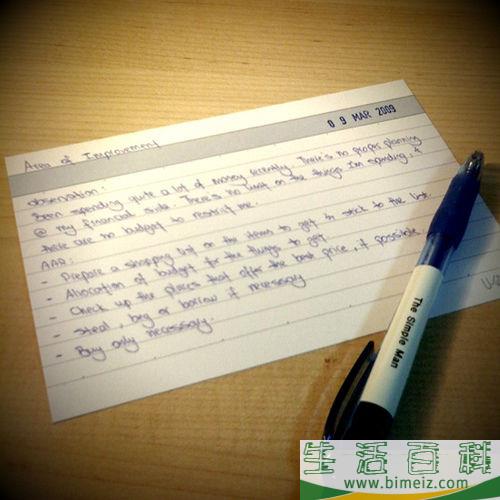 09 MAR 2009
Area of Improvement
Observation:
Been spending quite a lot of money recently. There's no proper planning
@ my financial side. There's no limit on the things I'm spending, &
there are no budget to restrict me.
AAR:
- Prepare a shopping list on the items to get & stick to the list.
- Allocation of budget for the things to get
- Check up the places that offer the best price, if possible.
- Steal, beg or borrow if necessary
- Buy only necessary.
The Simple Man
生活百科
www.bimeiz.com